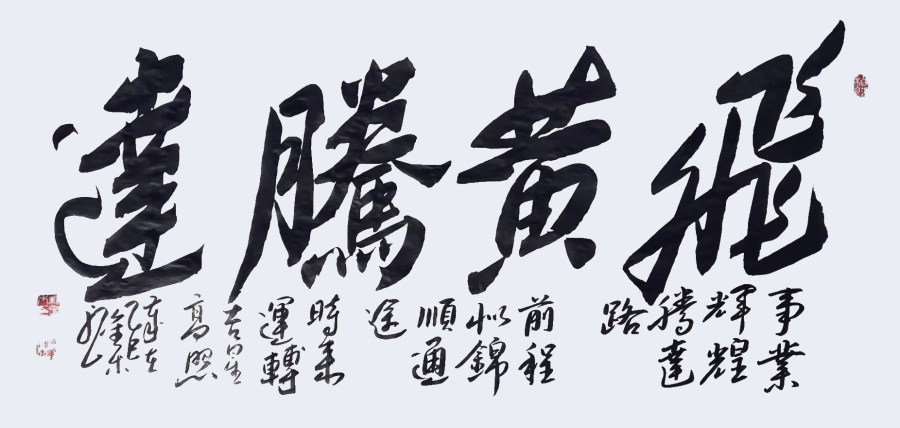 飛黄騰達
事業
輝煌
騰達
路
前程
似錦
順通
途
時来
運轉
吉星
高照
歲在